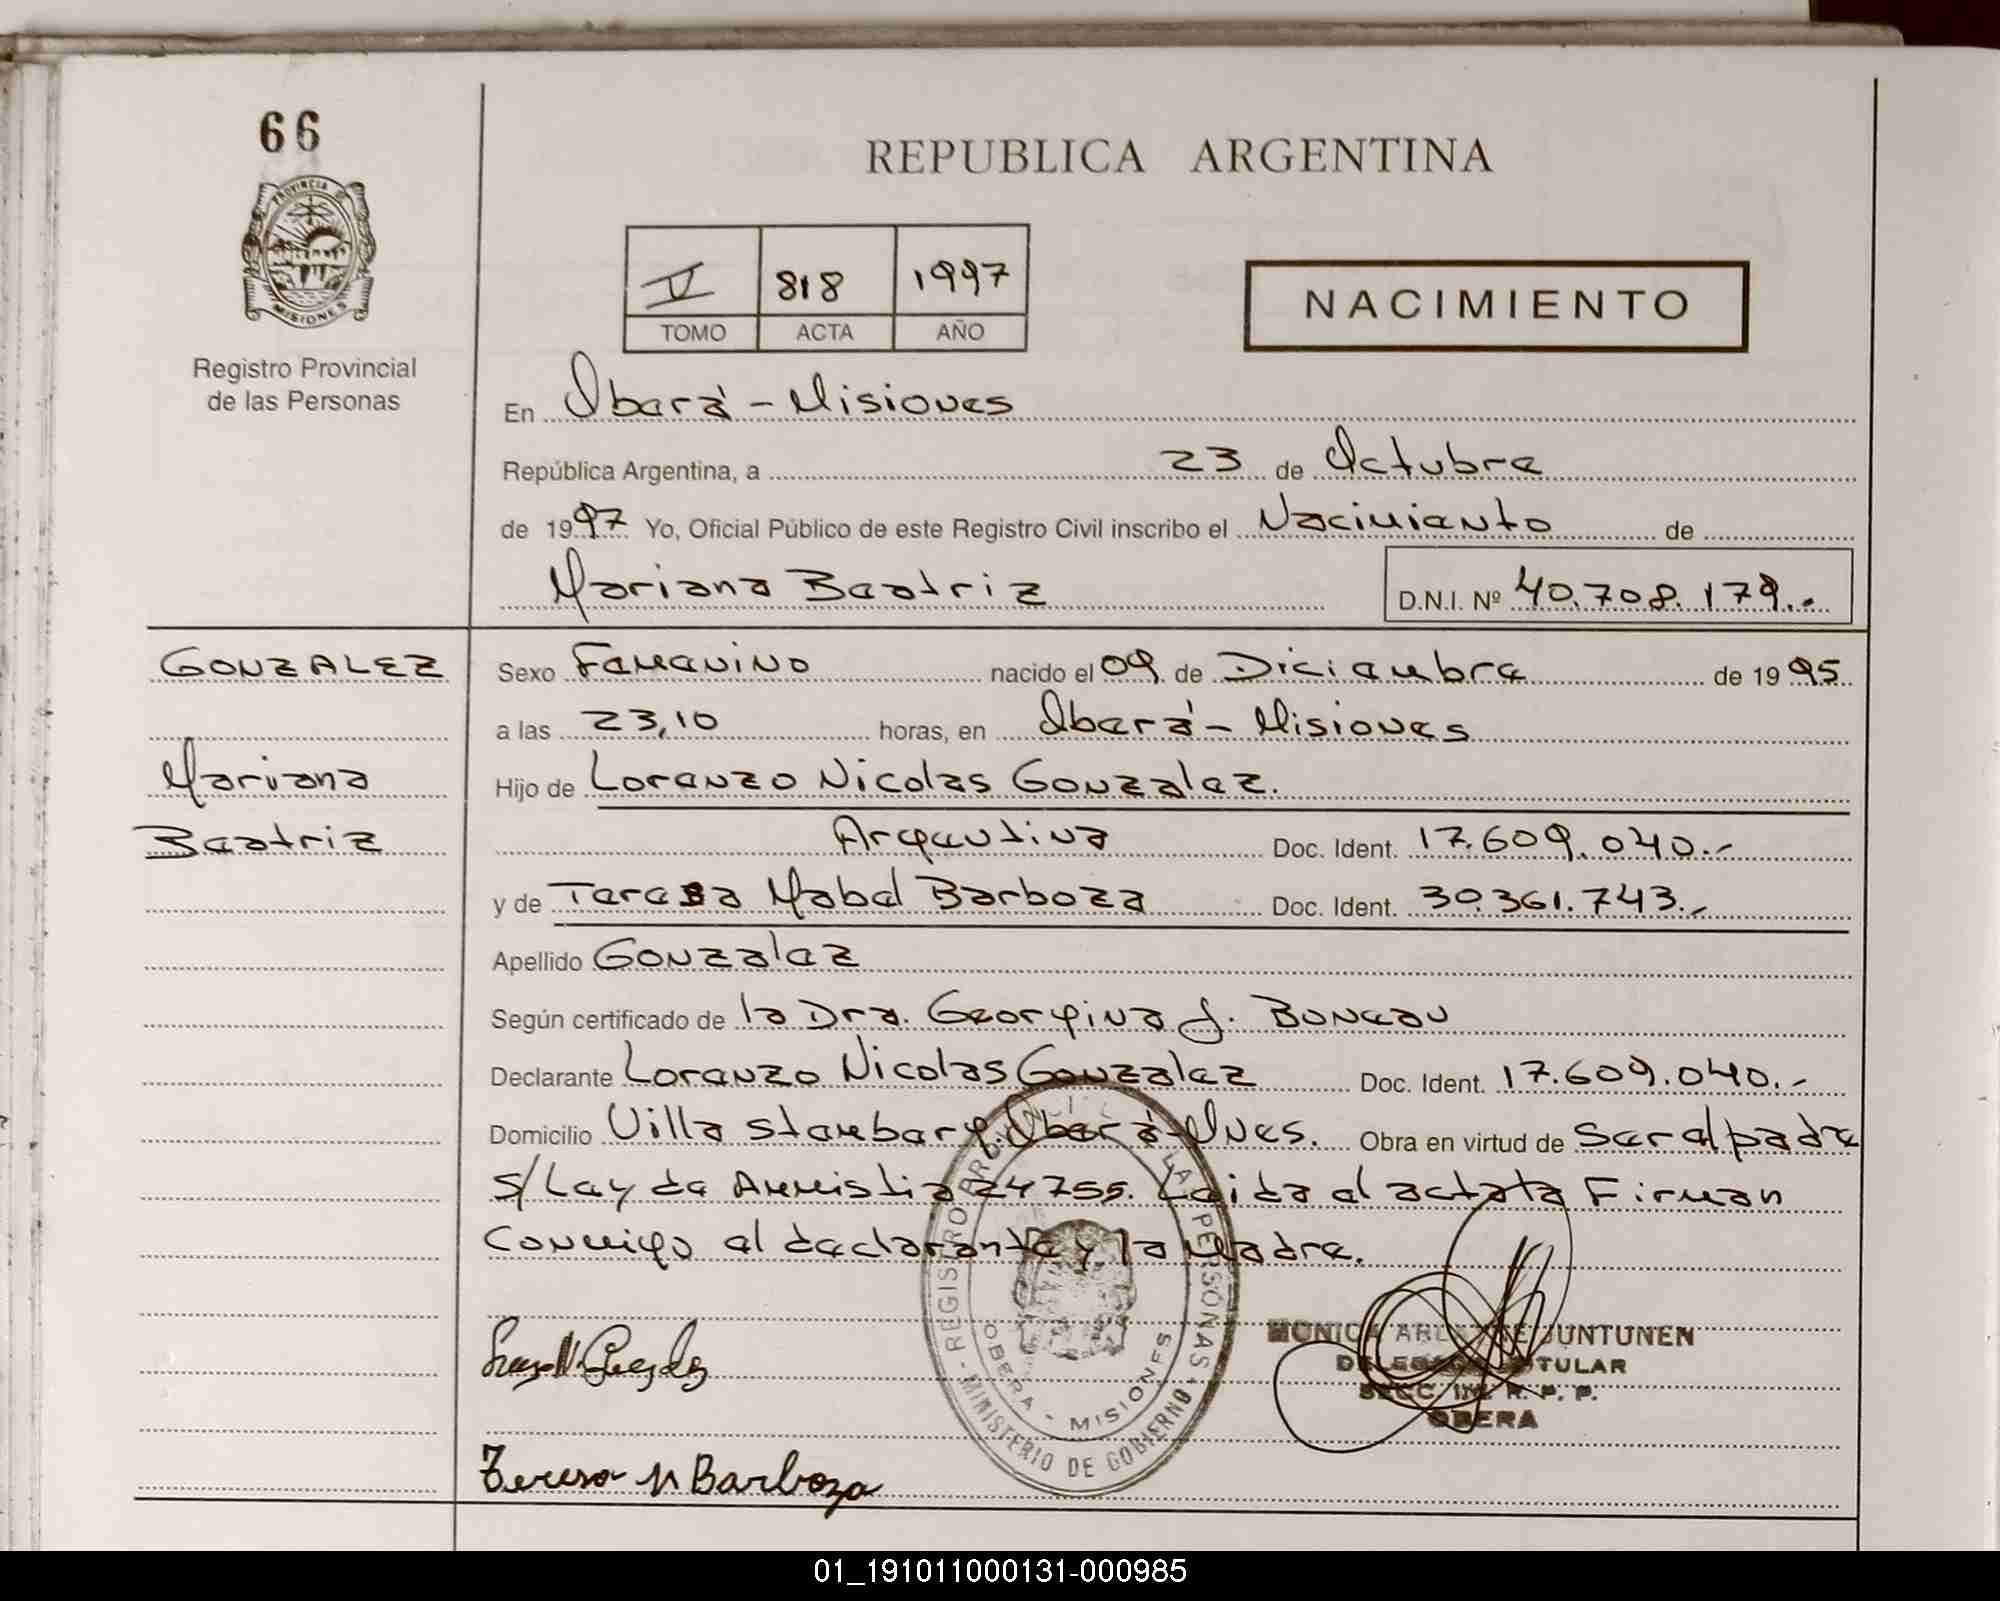 66
REPUBLICA ARGENTINA
PROVINCIA DE
MISIONES
Registro Provincial
de las Personas
V 818 1997
TOMO ACTA AÑO
NACIMIENTO
En Oberá - Misiones
República Argentina, a 23 de Octubre
de 1997 Yo, Oficial Público de este Registro Civil inscribo el Nacimiento de
Mariana Beatriz D.N.I. Nº 40.708.179.-
GONZALEZ
Mariana
Beatriz
Sexo Femenino nacido el 09 de Diciembre de 1995
a las 23,10 horas, en Oberá - Misiones
Hijo de Lorenzo Nicolas Gonzalez.
Argentina Doc. Ident. 17.609.040.-
y de Teresa Mabel Barboza Doc. Ident. 30.361.743.-
Apellido Gonzalez
Según certificado de la Dra. Georgina J.
Declarante Lorenzo Nicolas Gonzalez Doc. Ident. 17.609.040.-
Domicilio Villa Stemberg. Oberá - Mnes. Obra en virtud de ser el padre
s/Ley de Amnistia 24755. Leida el acta la Firman
Conmigo el declarante y la Madre.
REGISTRO PROVINCIAL DE LAS PERSONAS
MINISTERIO DE GOBIERNO
OBERA - MISIONES
MONICA JUNTUNEN
DELEGADA TITULAR
R. P. P.
OBERA
Teresa M Barboza
01_191011000131-000985